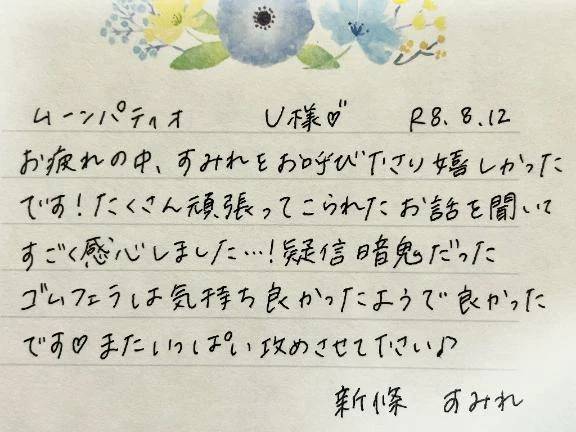 ムーンパティオ U様♡ R8.8.12
お疲れの中、すみれをお呼び下さり嬉しかった
です!たくさん頑張ってこられたお話を聞いて
すごく感心しました…!疑信暗鬼だった
ゴムフェラは気持ち良かったようで良かった
です♡またいっぱい攻めさせて下さい♪
新條 すみれ